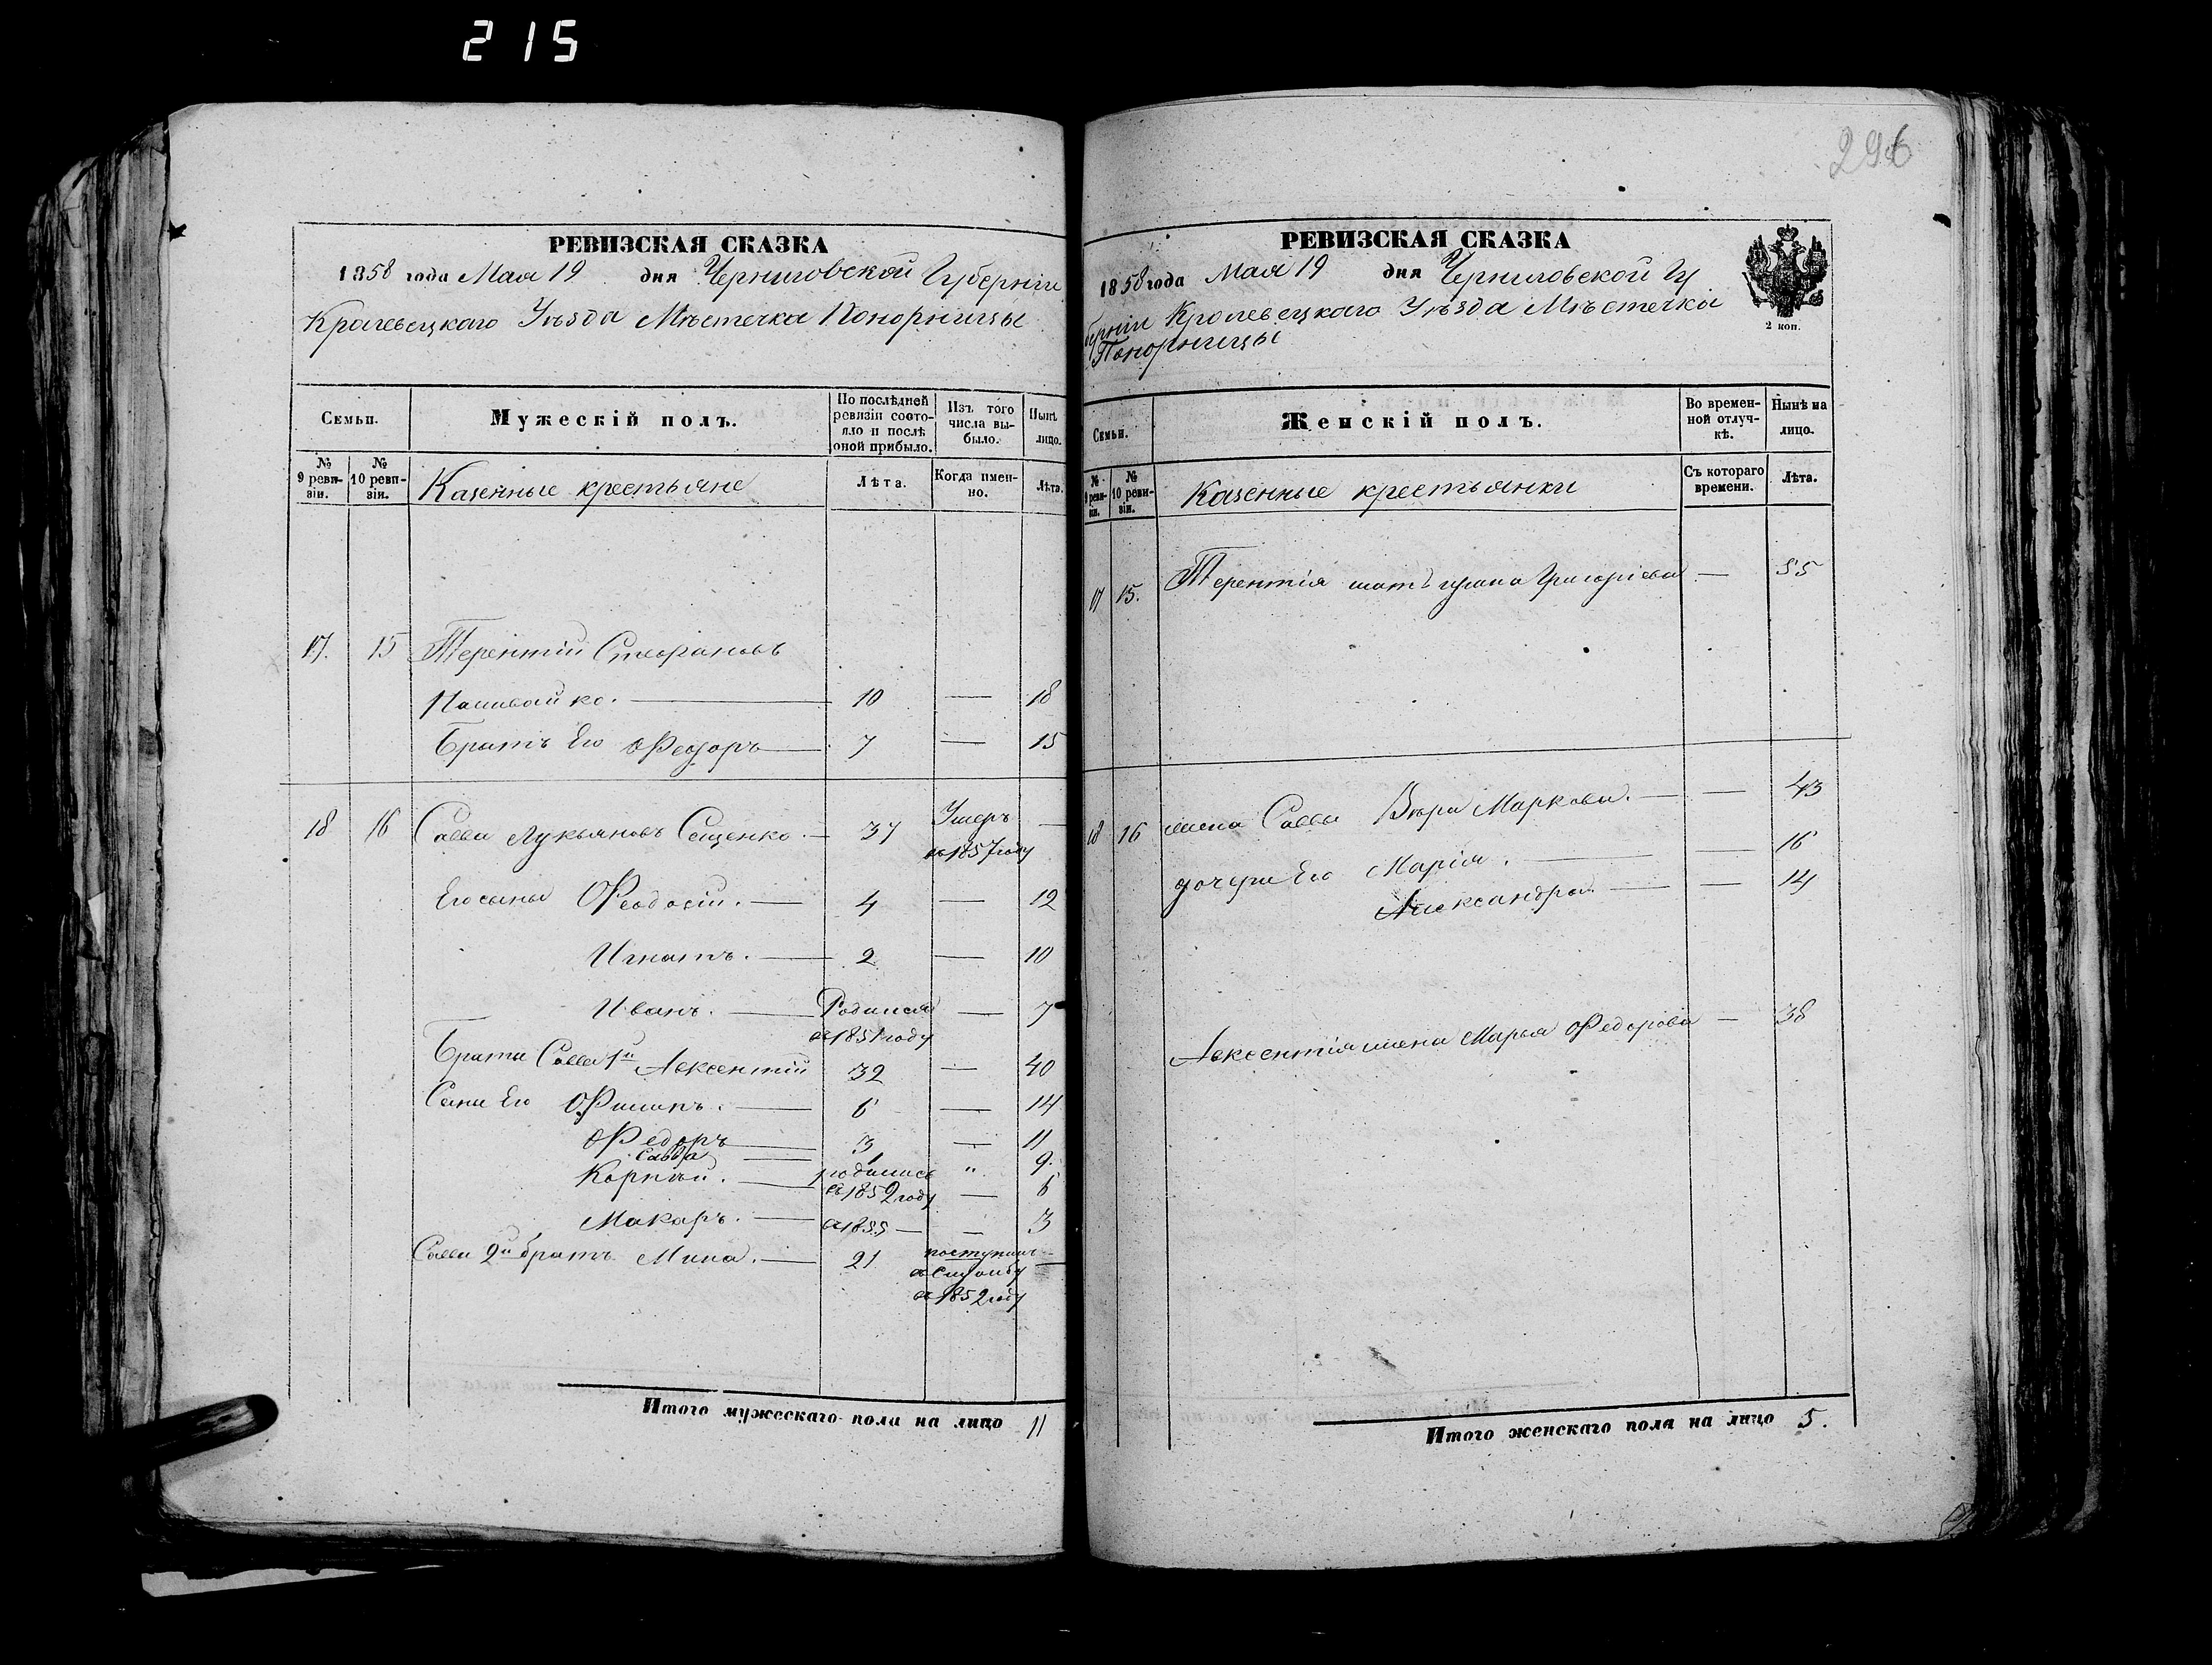 215
296
РЕВИЗСКАЯ СКАЗКА
1858 года Мая 19 дня Черниговской Губерніи
Кролевецкаго Уѣзда Мѣстечка Понорницы
Семьи.
Мужескій полъ.
По послѣдней ревизіи состояло и послѣ оной прибыло.
Изъ того числа выбыло.
Нынѣ на лицо.
№ 9 ревизіи.
№ 10 ревизіи.
Казенные крестьяне
Лѣта.
Когда именно.
Лѣта.
17. 15 Терентій Стефановъ
Пашивайко. 10 — 18
Братъ Его Федоръ 7 — 15
18 16 Савва Лукьяновъ Сещенко. 37 Умеръ —
въ 1857 году
Его сыны Феодосій. 4 — 12
Игнатъ. 2 — 10
Иванъ. Родился — 7
въ 1851 году
Брата Саввы 1й Авксентій 32 — 40
Сыны Его Филипъ. 6 — 14
Федоръ 3 — 11
Савва 1 " 9.
Корнѣй. родились
въ 1852 году — 6
Макаръ. въ 1855 — — 3
Саввы 2й братъ Мина. 21 поступилъ —
въ Службу
въ 1852 году
Итого мужескаго пола на лицо 11
РЕВИЗСКАЯ СКАЗКА
1858 года Мая 19 дня Черниговской Гу
берніи Кролевецкаго Уѣзда Мѣстечка
Понорницы
2 коп.
Семьи.
Женскій полъ.
Во временной отлучкѣ.
Нынѣ на лицо.
№ 9 ревизіи.
№ 10 ревизіи.
Казенные крестьянки
Съ котораго времени.
Лѣта.
17 15. Терентія мать Григоріева — 55
18 16 жена Саввы Вѣра Маркова. — 43
дочери Его Марія. — 16
Александра. — 14
Авксентія жена Марья Федорова — 38
Итого женскаго пола на лицо 5.